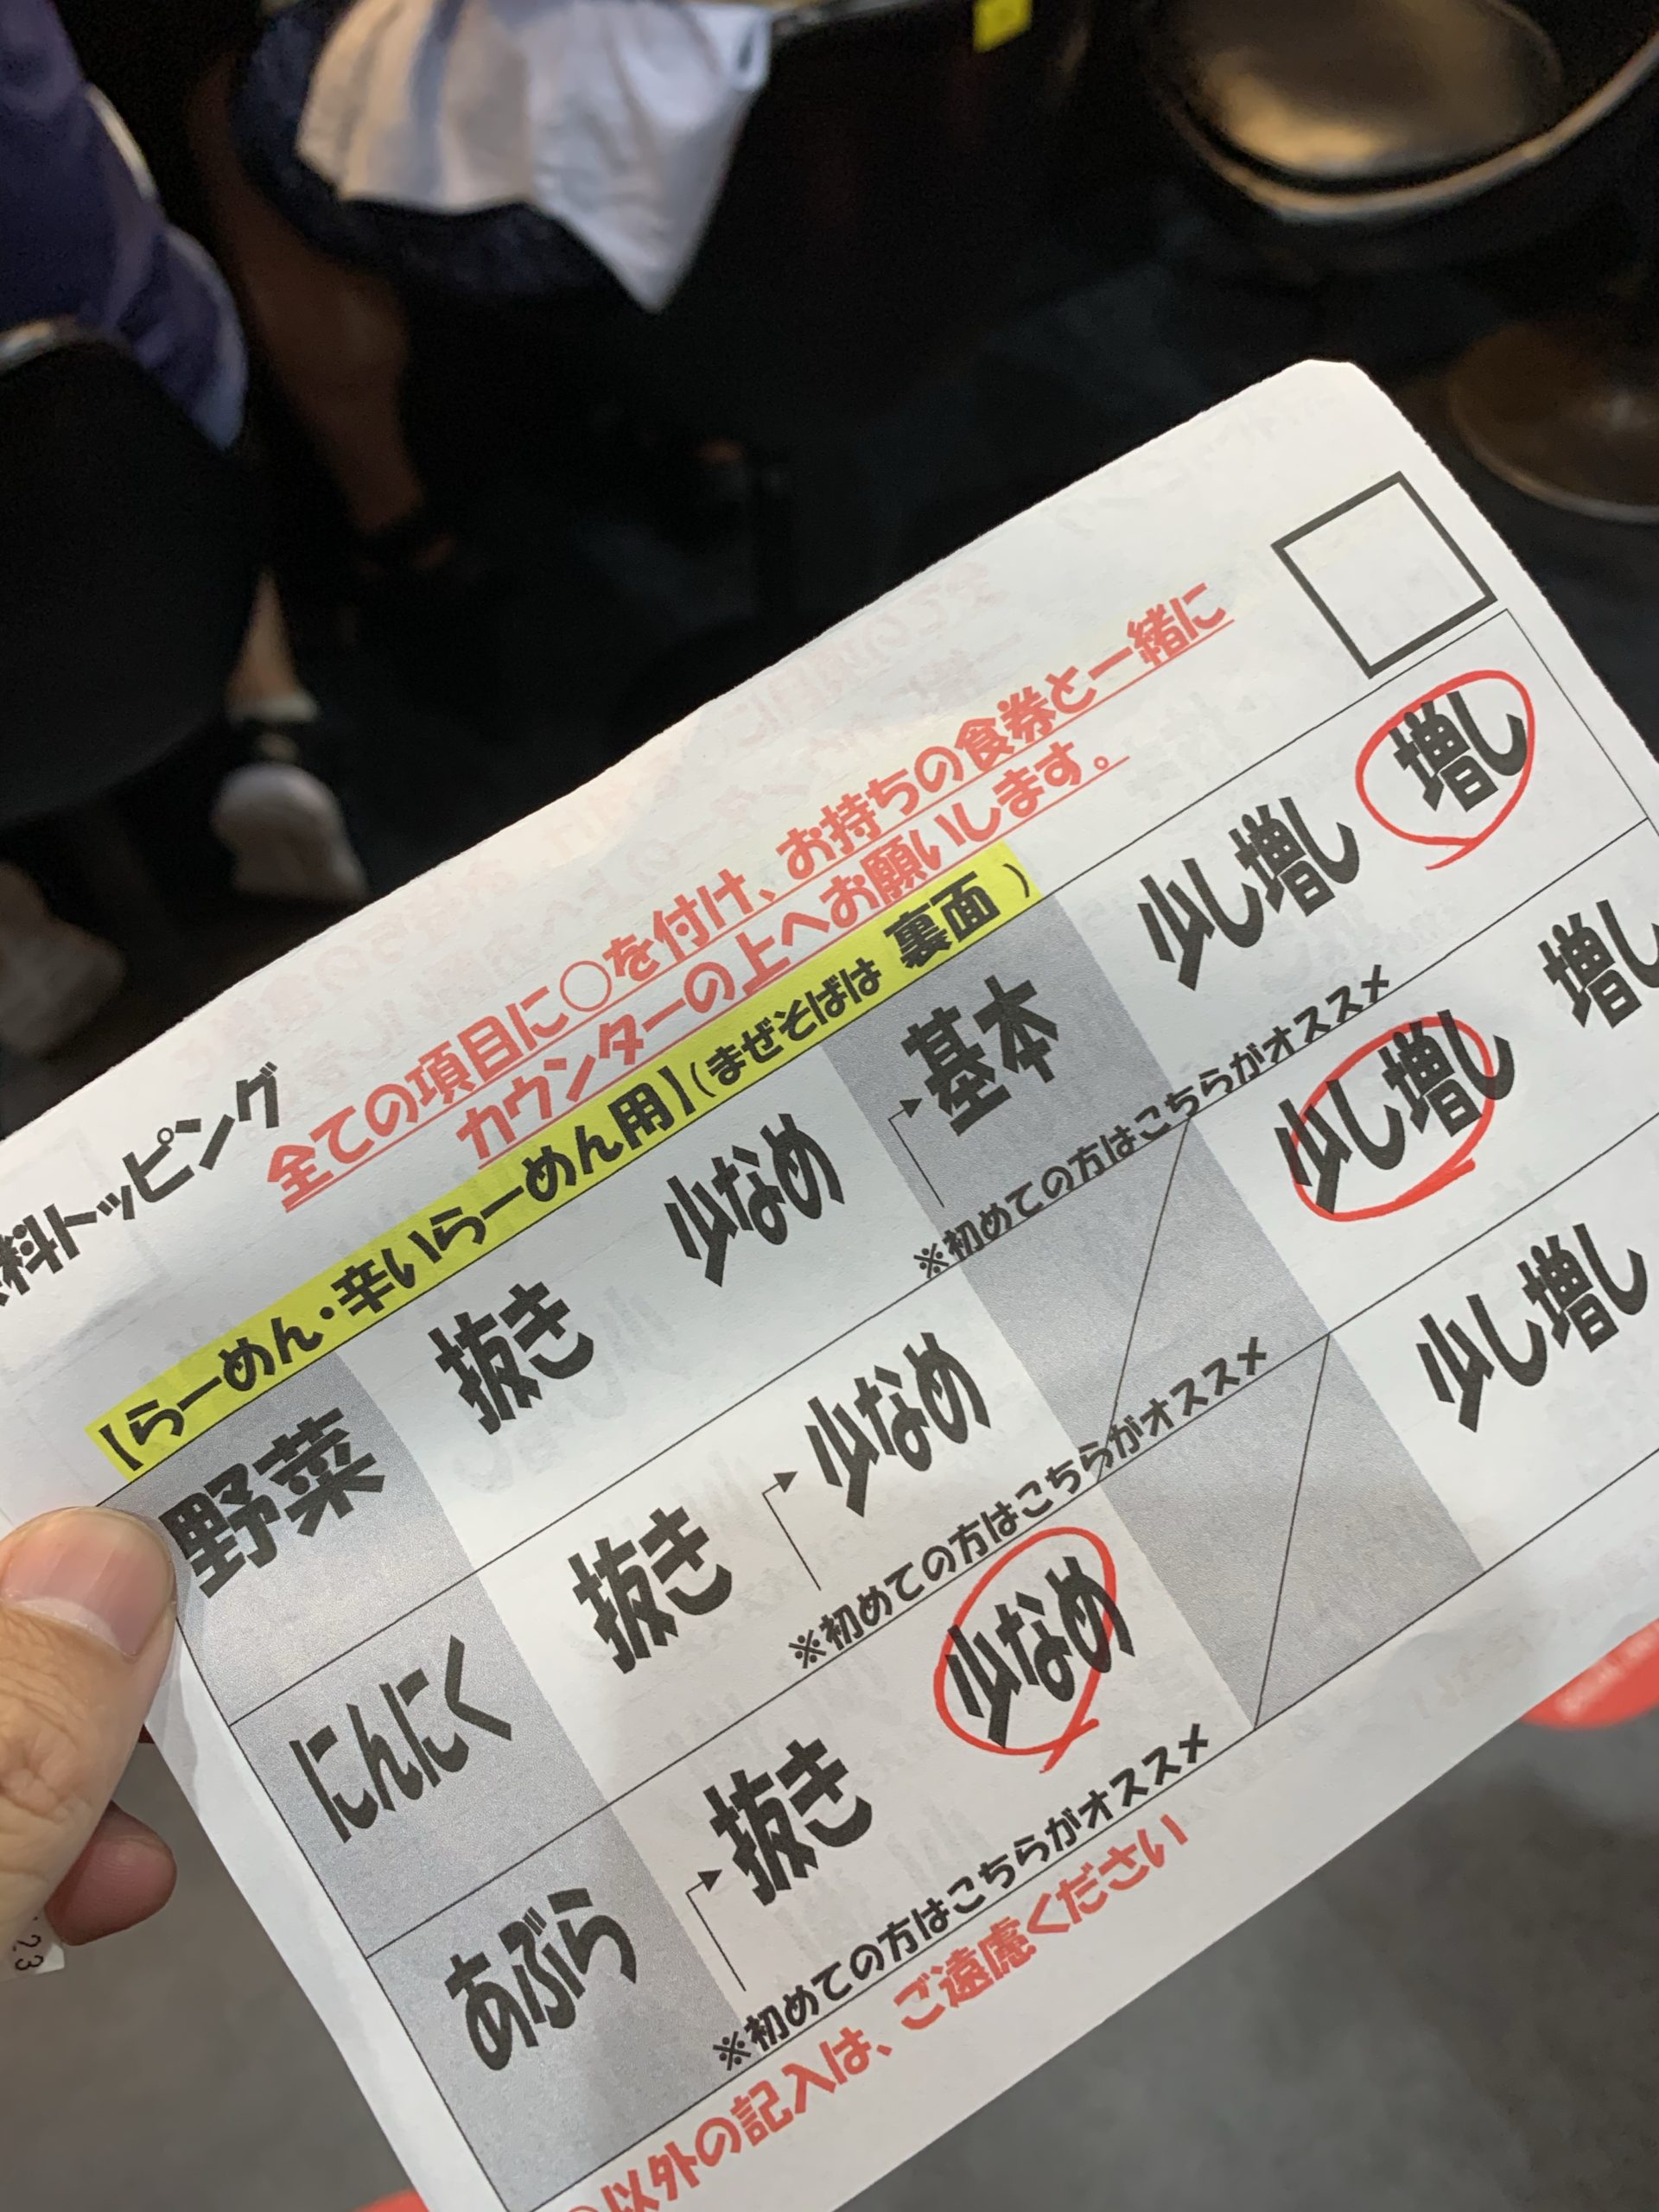 料トッピング
全ての項目に○を付け、お持ちの食券と一緒に
カウンターの上へお願いします。
【らーめん・辛いらーめん用】(まぜそばは 裏面 )
野菜 抜き 少なめ 基本 少し増し 増し
※初めての方はこちらがオススメ
にんにく 抜き 少なめ 少し増し 増し
※初めての方はこちらがオススメ
あぶら 抜き 少なめ 少し増し
※初めての方はこちらがオススメ
以外の記入は、ご遠慮ください
23